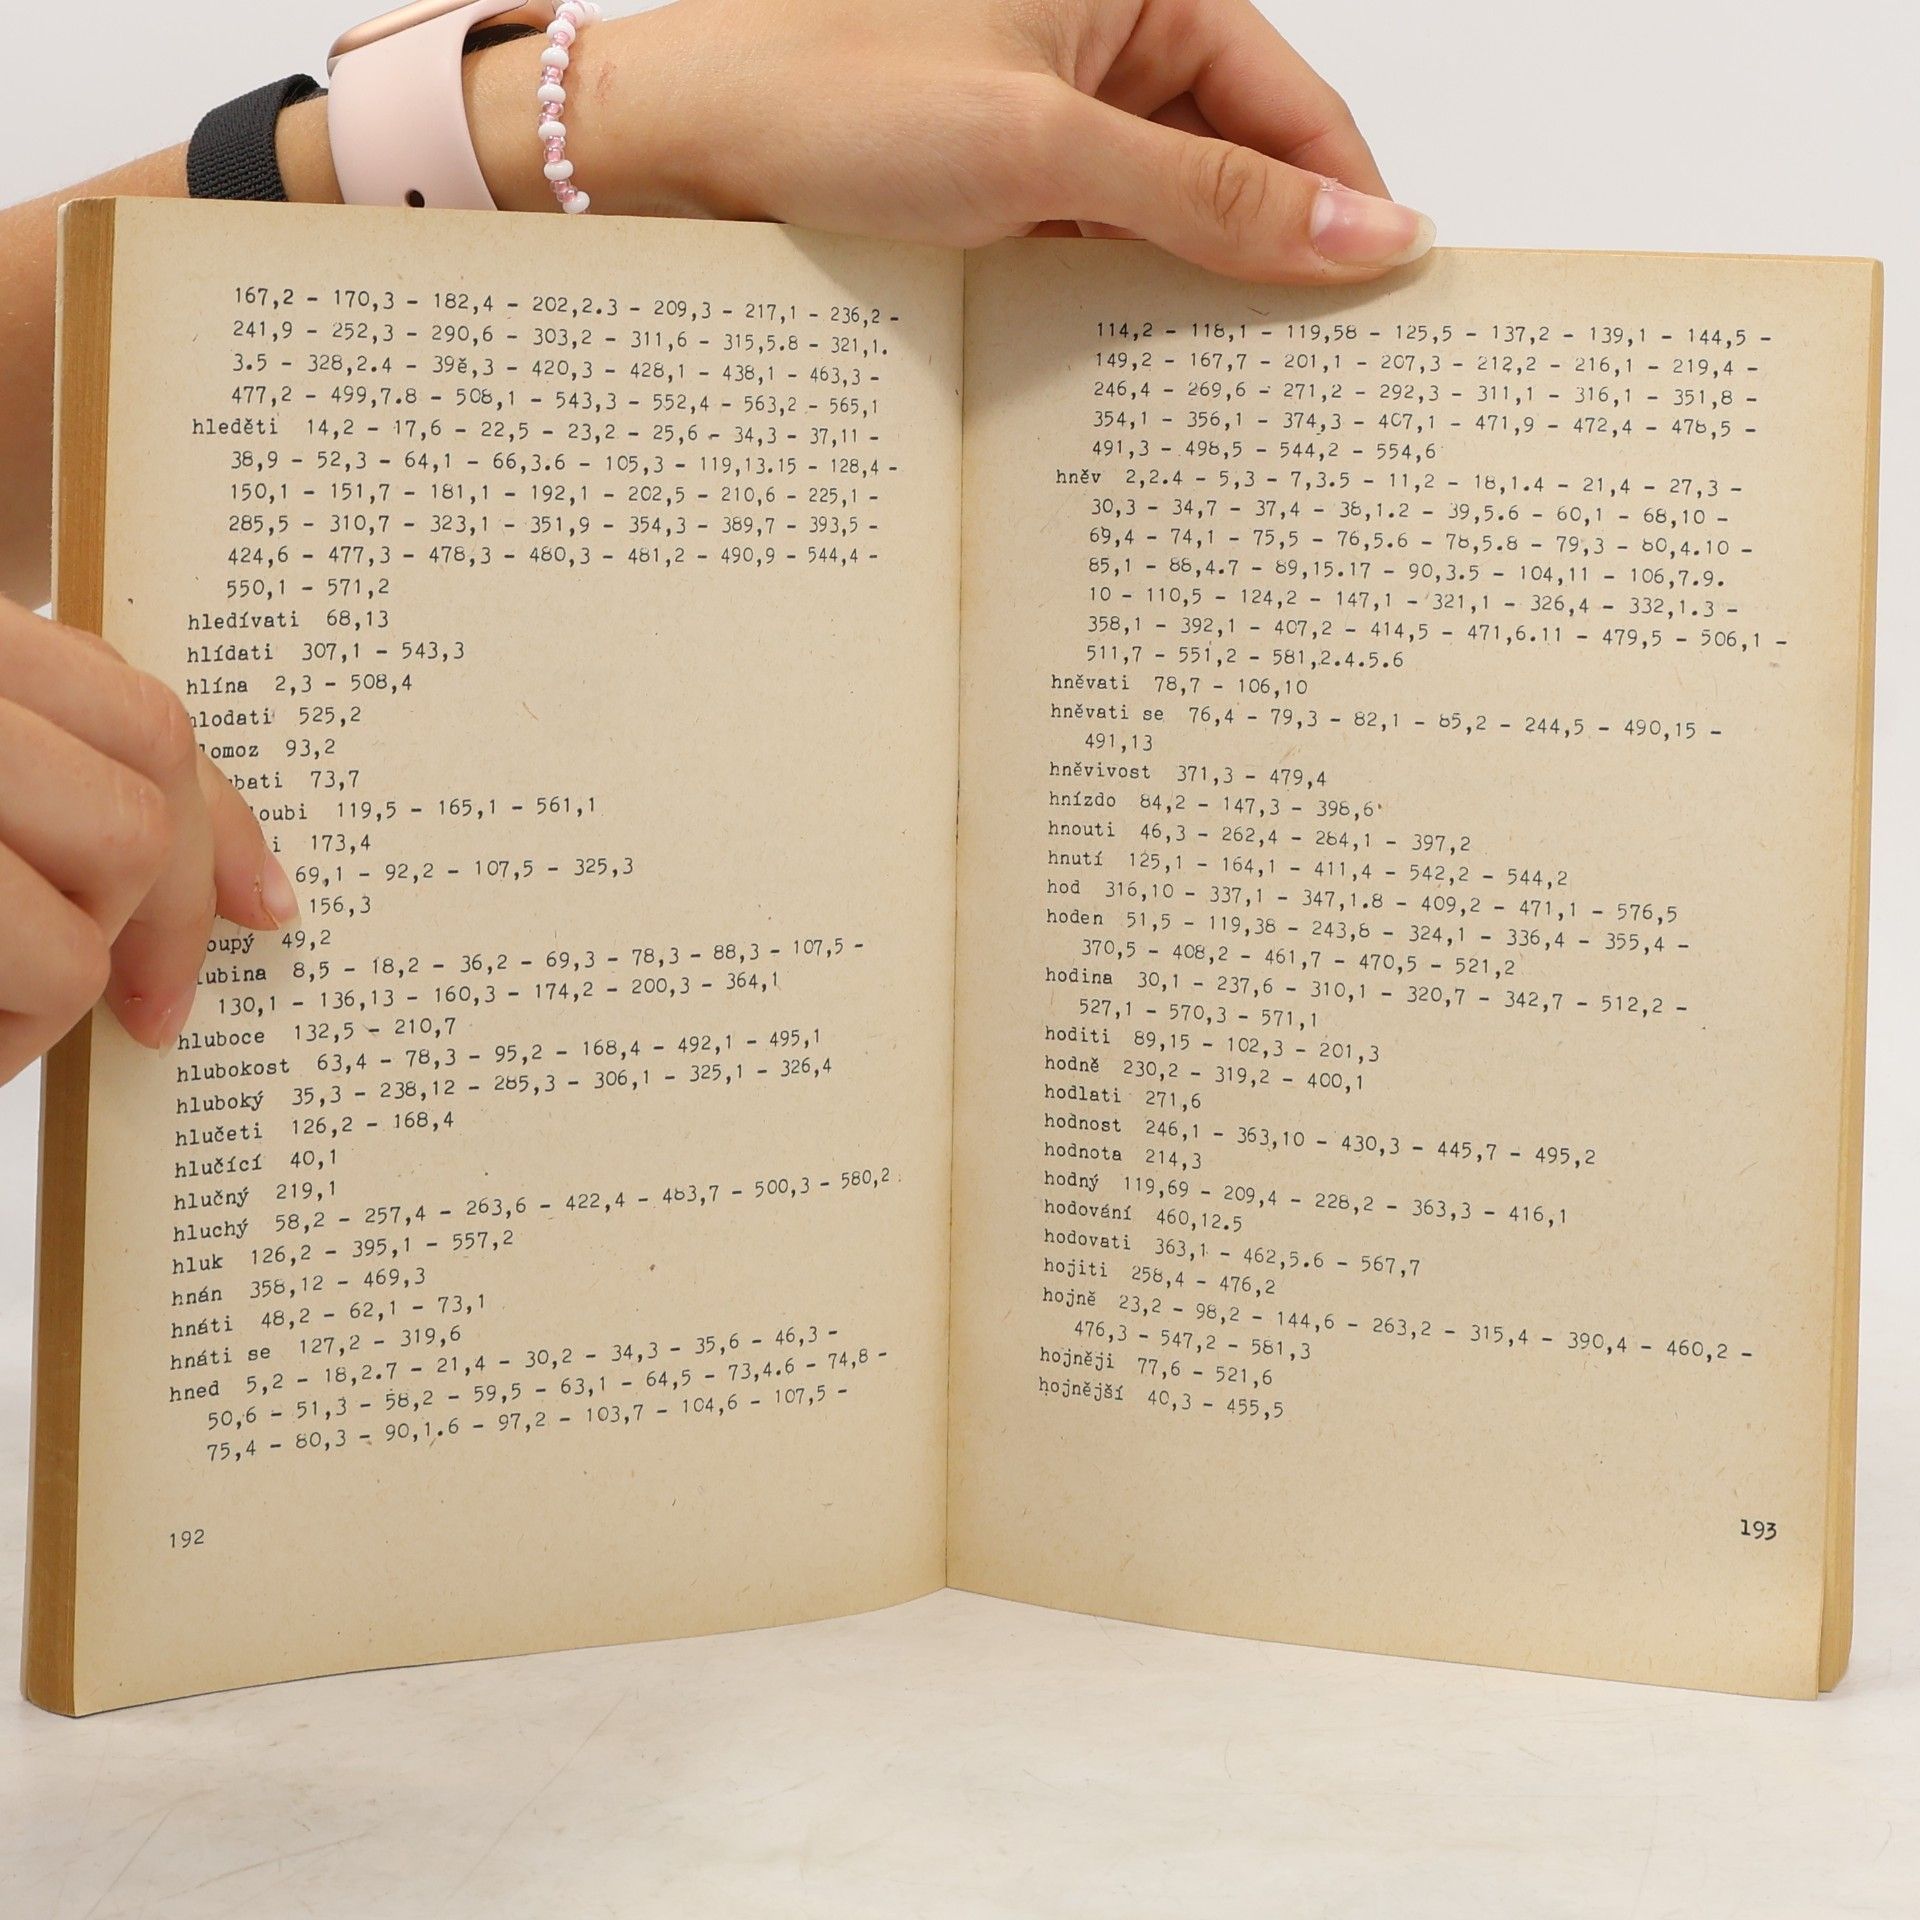 167,2 - 170,3 - 182,4 - 202,2.3 - 209,3 - 217,1 - 236,2 -
241,9 - 252,3 - 290,6 - 303,2 - 311,6 - 315,5.8 - 321,1.
3.5 - 328,2.4 - 39ě,3 - 420,3 - 428,1 - 438,1 - 463,3 -
477,2 - 499,7.8 - 508,1 - 543,3 - 552,4 - 563,2 - 565,1
hleděti 14,2 - 17,6 - 22,5 - 23,2 - 25,6 - 34,3 - 37,11 -
38,9 - 52,3 - 64,1 - 66,3.6 - 105,3 - 119,13.15 - 128,4 -
150,1 - 151,7 - 181,1 - 192,1 - 202,5 - 210,6 - 225,1 -
285,5 - 310,7 - 323,1 - 351,9 - 354,3 - 389,7 - 393,5 -
424,6 - 477,3 - 478,3 - 480,3 - 481,2 - 490,9 - 544,4 -
550,1 - 571,2
hledívati 68,13
hlídati 307,1 - 543,3
hlína 2,3 - 508,4
hlodati 525,2
lomoz 93,2
bati 73,7
loubi 119,5 - 165,1 - 561,1
i 173,4
69,1 - 92,2 - 107,5 - 325,3
156,3
oupý 49,2
lubina 8,5 - 18,2 - 36,2 - 69,3 - 78,3 - 88,3 - 107,5 -
130,1 - 136,13 - 160,3 - 174,2 - 200,3 - 364,1
hluboce 132,5 - 210,7
hlubokost 63,4 - 78,3 - 95,2 - 168,4 - 492,1 - 495,1
hluboký 35,3 - 238,12 - 285,3 - 306,1 - 325,1 - 326,4
hlučeti 126,2 - 168,4
hlučící 40,1
hlučný 219,1
hluchý 58,2 - 257,4 - 263,6 - 422,4 - 483,7 - 500,3 - 580,2
hluk 126,2 - 395,1 - 557,2
hnán 358,12 - 469,3
hnáti 48,2 - 62,1 - 73,1
hnáti se 127,2 - 319,6
hned 5,2 - 18,2.7 - 21,4 - 30,2 - 34,3 - 35,6 - 46,3 -
50,6 - 51,3 - 58,2 - 59,5 - 63,1 - 64,5 - 73,4.6 - 74,8 -
75,4 - 80,3 - 90,1.6 - 97,2 - 103,7 - 104,6 - 107,5 -
192
114,2 - 118,1 - 119,58 - 125,5 - 137,2 - 139,1 - 144,5 -
149,2 - 167,7 - 201,1 - 207,3 - 212,2 - 216,1 - 219,4 -
246,4 - 269,6 - 271,2 - 292,3 - 311,1 - 316,1 - 351,8 -
354,1 - 356,1 - 374,3 - 407,1 - 471,9 - 472,4 - 478,5 -
491,3 - 498,5 - 544,2 - 554,6
hněv 2,2.4 - 5,3 - 7,3.5 - 11,2 - 18,1.4 - 21,4 - 27,3 -
30,3 - 34,7 - 37,4 - 38,1.2 - 39,5.6 - 60,1 - 68,10 -
69,4 - 74,1 - 75,5 - 76,5.6 - 78,5.8 - 79,3 - 80,4.10 -
85,1 - 88,4.7 - 89,15.17 - 90,3.5 - 104,11 - 106,7.9.
10 - 110,5 - 124,2 - 147,1 - 321,1 - 326,4 - 332,1.3 -
358,1 - 392,1 - 407,2 - 414,5 - 471,6.11 - 479,5 - 506,1 -
511,7 - 551,2 - 581,2.4.5.6
hněvati 78,7 - 106,10
hněvati se 76,4 - 79,3 - 82,1 - 85,2 - 244,5 - 490,15 -
491,13
hněvivost 371,3 - 479,4
hnízdo 84,2 - 147,3 - 398,6
hnouti 46,3 - 262,4 - 284,1 - 397,2
hnutí 125,1 - 164,1 - 411,4 - 542,2 - 544,2
hod 316,10 - 337,1 - 347,1.8 - 409,2 - 471,1 - 576,5
hoden 51,5 - 119,38 - 243,8 - 324,1 - 336,4 - 355,4 -
370,5 - 408,2 - 461,7 - 470,5 - 521,2
hodina 30,1 - 237,6 - 310,1 - 320,7 - 342,7 - 512,2 -
527,1 - 570,3 - 571,1
hoditi 89,15 - 102,3 - 201,3
hodně 230,2 - 319,2 - 400,1
hodlati 271,6
hodnost 246,1 - 363,10 - 430,3 - 445,7 - 495,2
hodnota 214,3
hodný 119,69 - 209,4 - 228,2 - 363,3 - 416,1
hodování 460,12.5
hodovati 363,1 - 462,5.6 - 567,7
hojiti 258,4 - 476,2
hojně 23,2 - 98,2 - 144,6 - 263,2 - 315,4 - 390,4 - 460,2 -
476,3 - 547,2 - 581,3
hojněji 77,6 - 521,6
hojnější 40,3 - 455,5
193